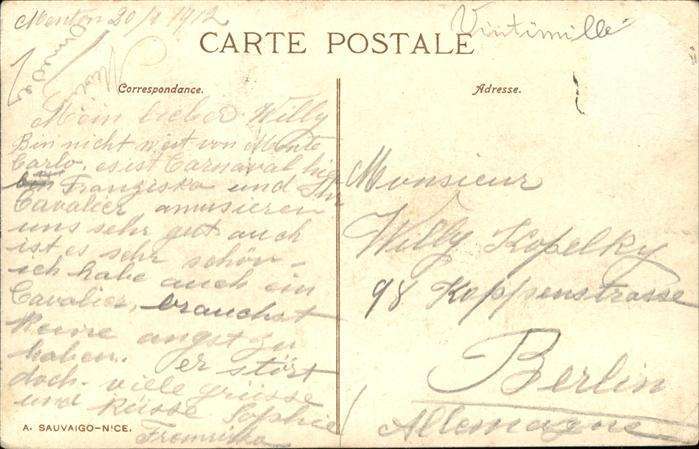 Menton 20/2 1912
Vintimille
CARTE POSTALE
Correspondance.
Adresse.
Mein lieber Willy
Bin nicht weit von Monte
Carlo. es ist Carnaval hier
Franziska und Ihr
Cavalier amusieren
uns sehr gut auch
ist es sehr schön -
ich habe auch ein
Cavalier, brauchst
Keine angst zu
haben. er stört
doch. viele grüsse
und Küsse Sophie
Monsieur
Willy Kopelky
98 Koppenstrasse
Berlin
Allemagne
A. SAUVAIGO-NICE.